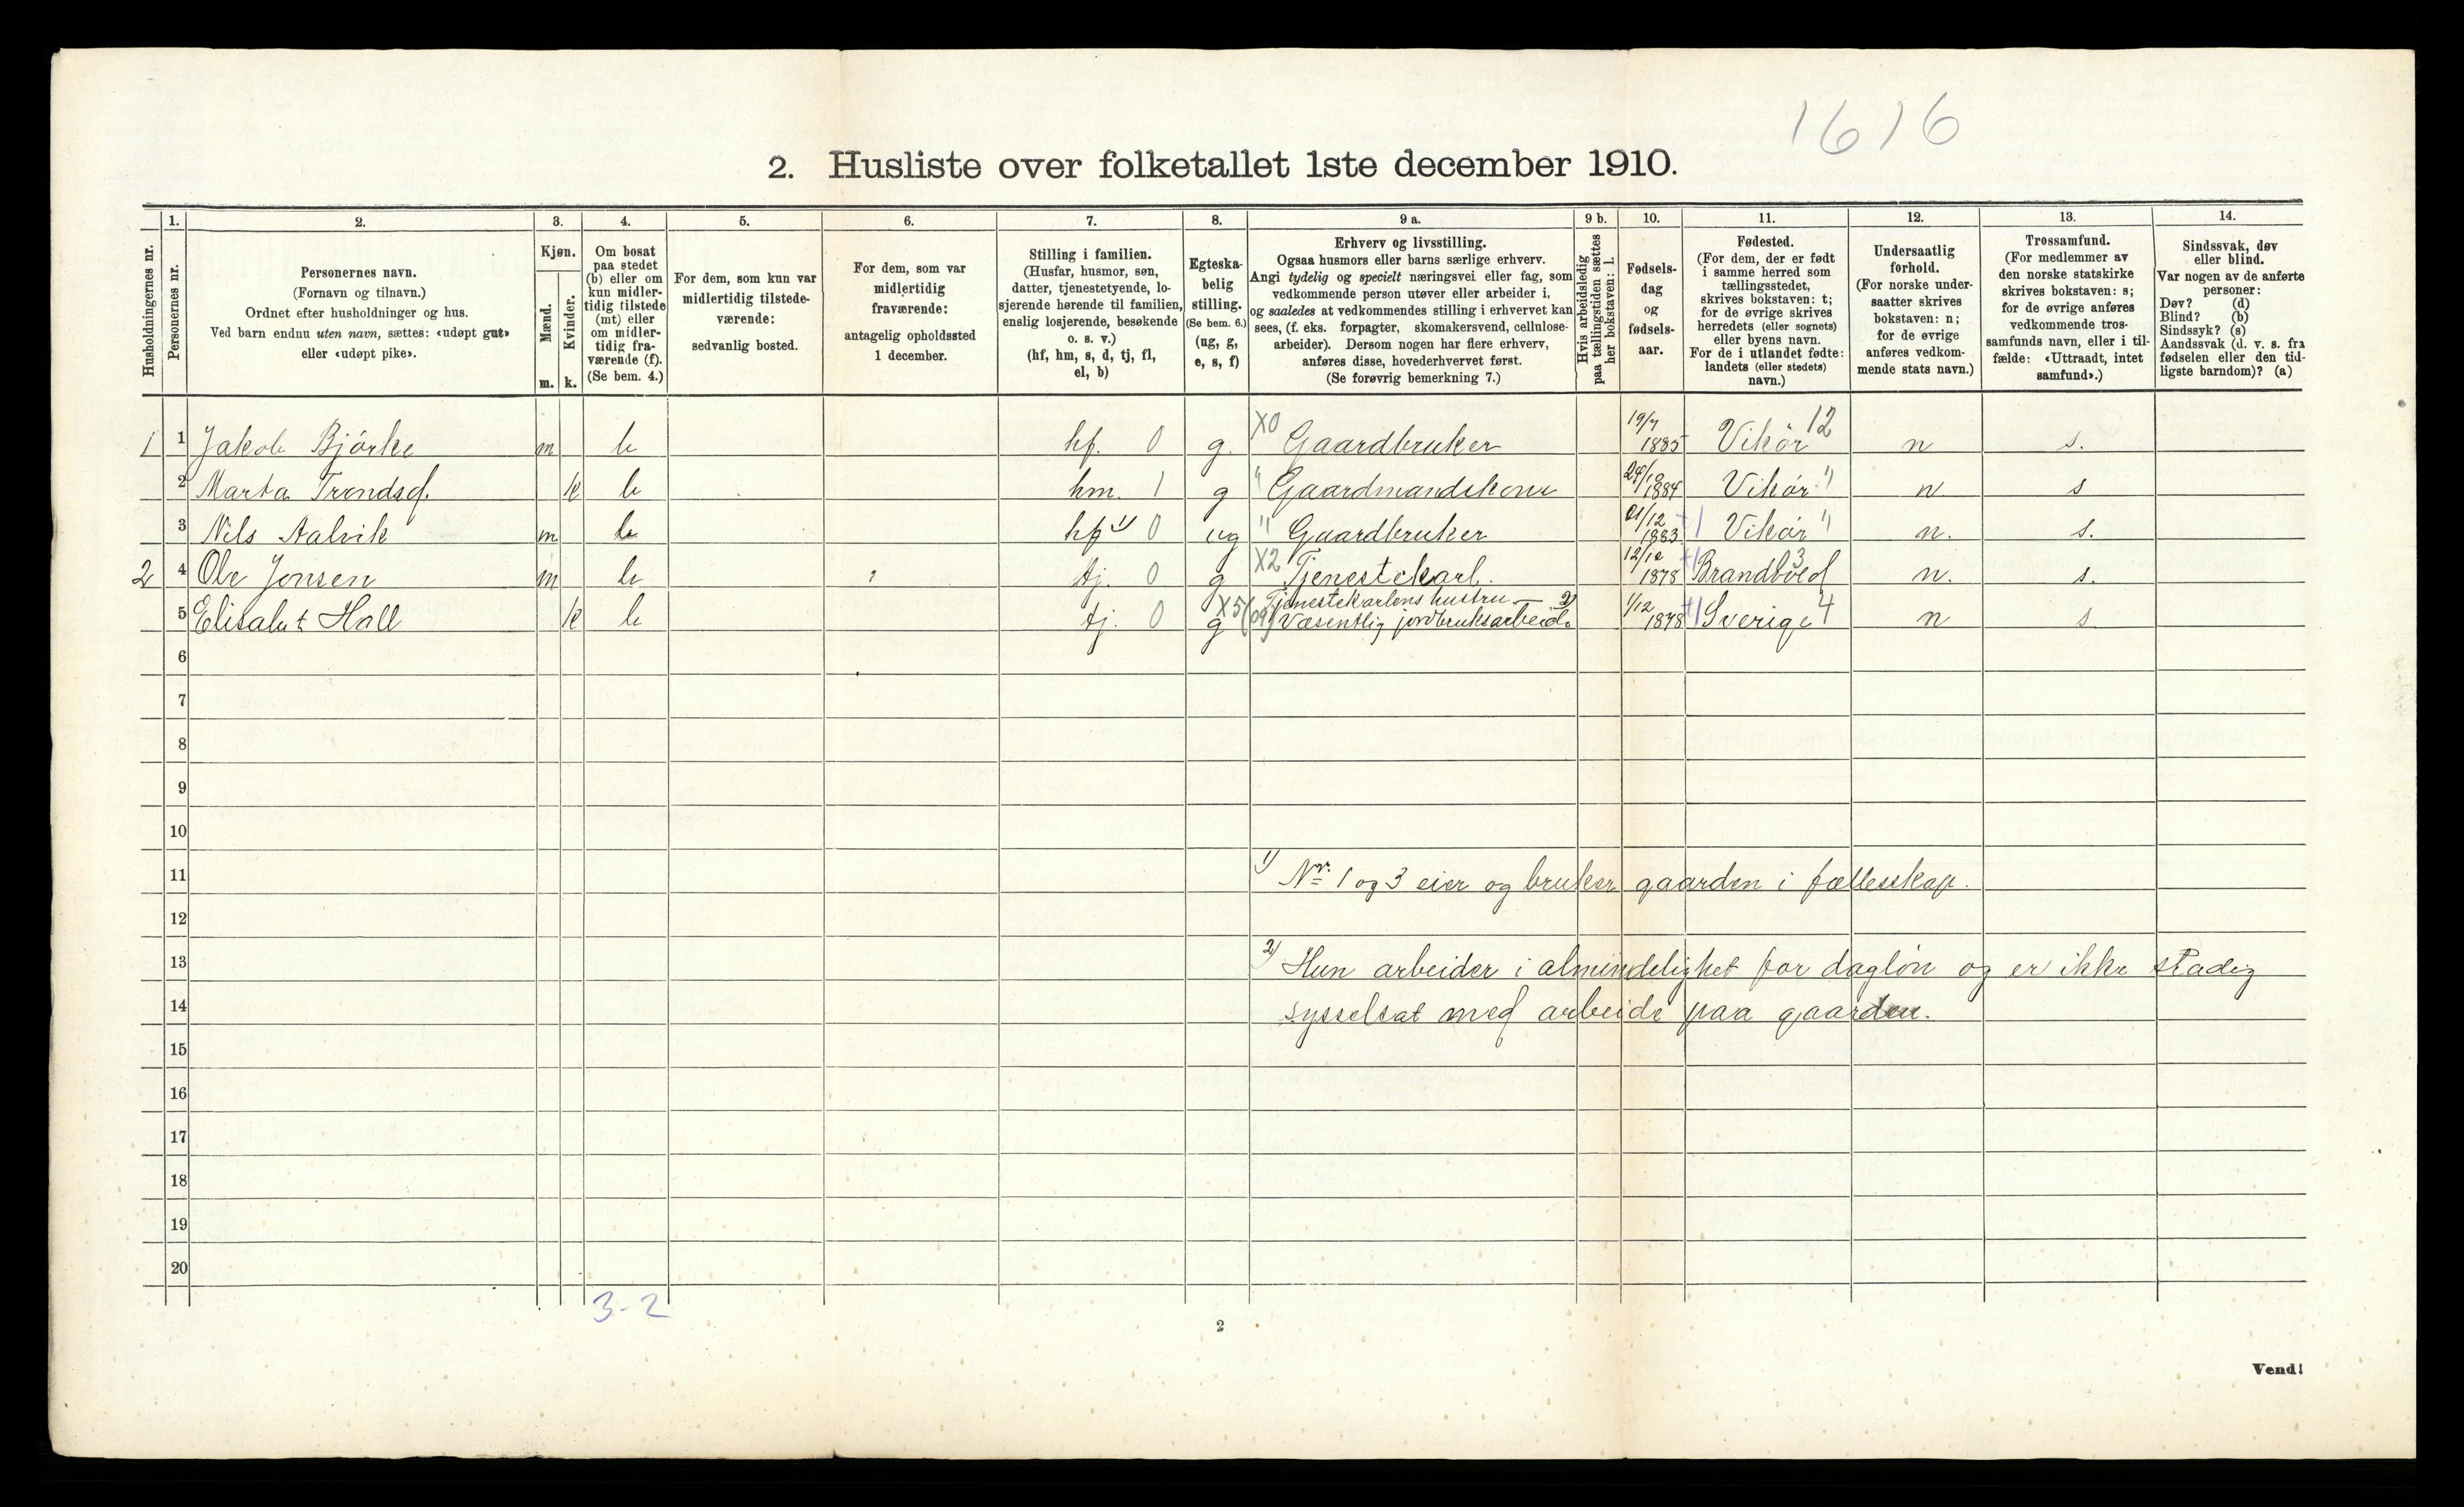 1616
2. Husliste over folketallet 1ste december 1910.
Husholdningernes nr.
1.
Personernes nr.
2.
Personernes navn.
(Fornavn og tilnavn.)
Ordnet efter husholdninger og hus.
Ved barn endnu uten navn, sættes: «udøpt gut»
eller «udøpt pike».
3.
Kjøn.
Mænd.
m.
Kvinder.
k.
4.
Om bosat
paa stedet
(b) eller om
kun midler-
tidig tilstede
(mt) eller
om midler-
tidig fra-
værende (f).
(Se bem. 4.)
5.
For dem, som kun var
midlertidig tilstede-
værende:
sedvanlig bosted.
6.
For dem, som var
midlertidig
fraværende:
antagelig opholdssted
1 december.
7.
Stilling i familien.
(Husfar, husmor, søn,
datter, tjenestetyende, lo-
sjerende hørende til familien,
enslig losjerende, besøkende
o. s. v.)
(hf, hm, s, d, tj, fl,
el, b)
8.
Egteska-
belig
stilling.
(Se bem. 6.)
(ug, g,
e, s, f)
9 a.
Erhverv og livsstilling.
Ogsaa husmors eller barns særlige erhverv.
Angi tydelig og specielt næringsvei eller fag, som
vedkommende person utøver eller arbeider i,
og saaledes at vedkommendes stilling i erhvervet kan
sees, (f. eks. forpagter, skomakersvend, cellulose-
arbeider). Dersom nogen har flere erhverv,
anføres disse, hovederhvervet først.
(Se forøvrig bemerkning 7.)
9 b.
Hvis arbeidsledig
paa tællingstiden sættes
her bokstaven: l.
10.
Fødsels-
dag
og
fødsels-
aar.
11.
Fødested.
(For dem, der er født
i samme herred som
tællingsstedet,
skrives bokstaven: t;
for de øvrige skrives
herredets (eller sognets)
eller byens navn.
For de i utlandet fødte:
landets (eller stedets)
navn.)
12.
Undersaatlig
forhold.
(For norske under-
saatter skrives
bokstaven: n;
for de øvrige
anføres vedkom-
mende stats navn.)
13.
Trossamfund.
(For medlemmer av
den norske statskirke
skrives bokstaven: s;
for de øvrige anføres
vedkommende tros-
samfunds navn, eller i til-
fælde: «Uttraadt, intet
samfund».)
14.
Sindssvak, døv
eller blind.
Var nogen av de anførte
personer:
Døv? (d)
Blind? (b)
Sindssyk? (s)
Aandssvak (d. v. s. fra
fødselen eller den tid-
ligste barndom)? (a)
1 1 Jakob Björke m b hf. 0 g. X0 Gaardbruker 19/7 1885 Vikör 12 n s.
2 Marta Trondsd. k b hm. 1 g " Gaardmandskone 24/10 1884 Vikör " n. s
3 Nils Aalvik m b hf 1) 0 ug " Gaardbruker 21/12 1883 Vikör " n. s.
2 4 Ole Jonsen m b tj. 0 g X2 Tjenestekarl. 12/10 1878 Brandbu 3 n. s.
5 Elisabet Hall k b tj. 0 g X5 Tjenestekarlens hustru — 2)
Væsentlig jordbruksarbeide 1/12 1878 Sverige 4 n s
6
7
8
9
10
11 1) Nr. 1 og 3 eier og bruker gaarden i fællesskap.
12
13 2) Hun arbeider i almindelighet for daglön og er ikke stadig
14 sysselsat med arbeide paa gaarden.
15
16
17
18
19
20
3-2
2
Vend!